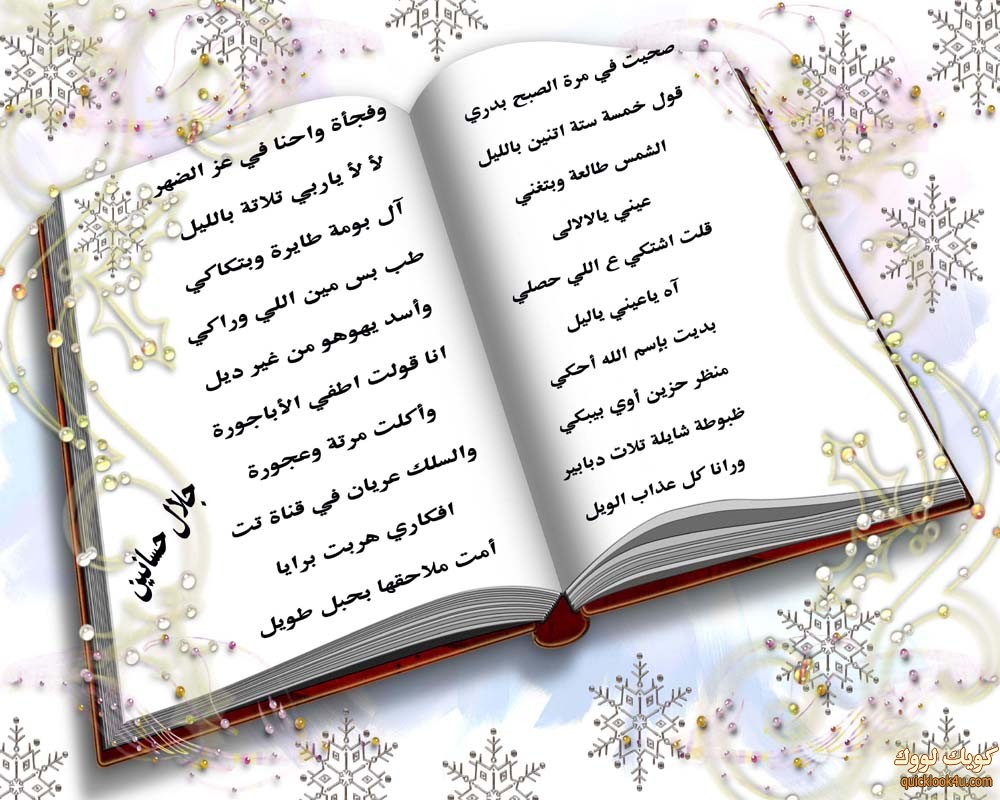 صحيت في مرة الصبح بدري
قول خمسة ستة اتنين بالليل
الشمس طالعة وبتغني
عيني يالالالى
قلت اشتكي ع اللي حصلي
آه ياعيني ياليل
بديت بإسم الله أحكي
منظر حزين أوي بيبكي
ظبوطة شايلة تلات دبابير
ورانا كل عذاب الويل
وفجأة واحنا في عز الضهر
لأ لأ ياربي تلاتة بالليل
آل بومة طايرة وبتكاكي
طب بس مين اللي وراكي
وأسد يهوهو من غير ديل
انا قولت اطفي الأباجورة
وأكلت مرتة وعجورة
والسلك عريان في قناة تت
افكاري هربت برايا
أمت ملاحقها بحبل طويل
جلال حسانين
كويك لووك
quicklook4u.com